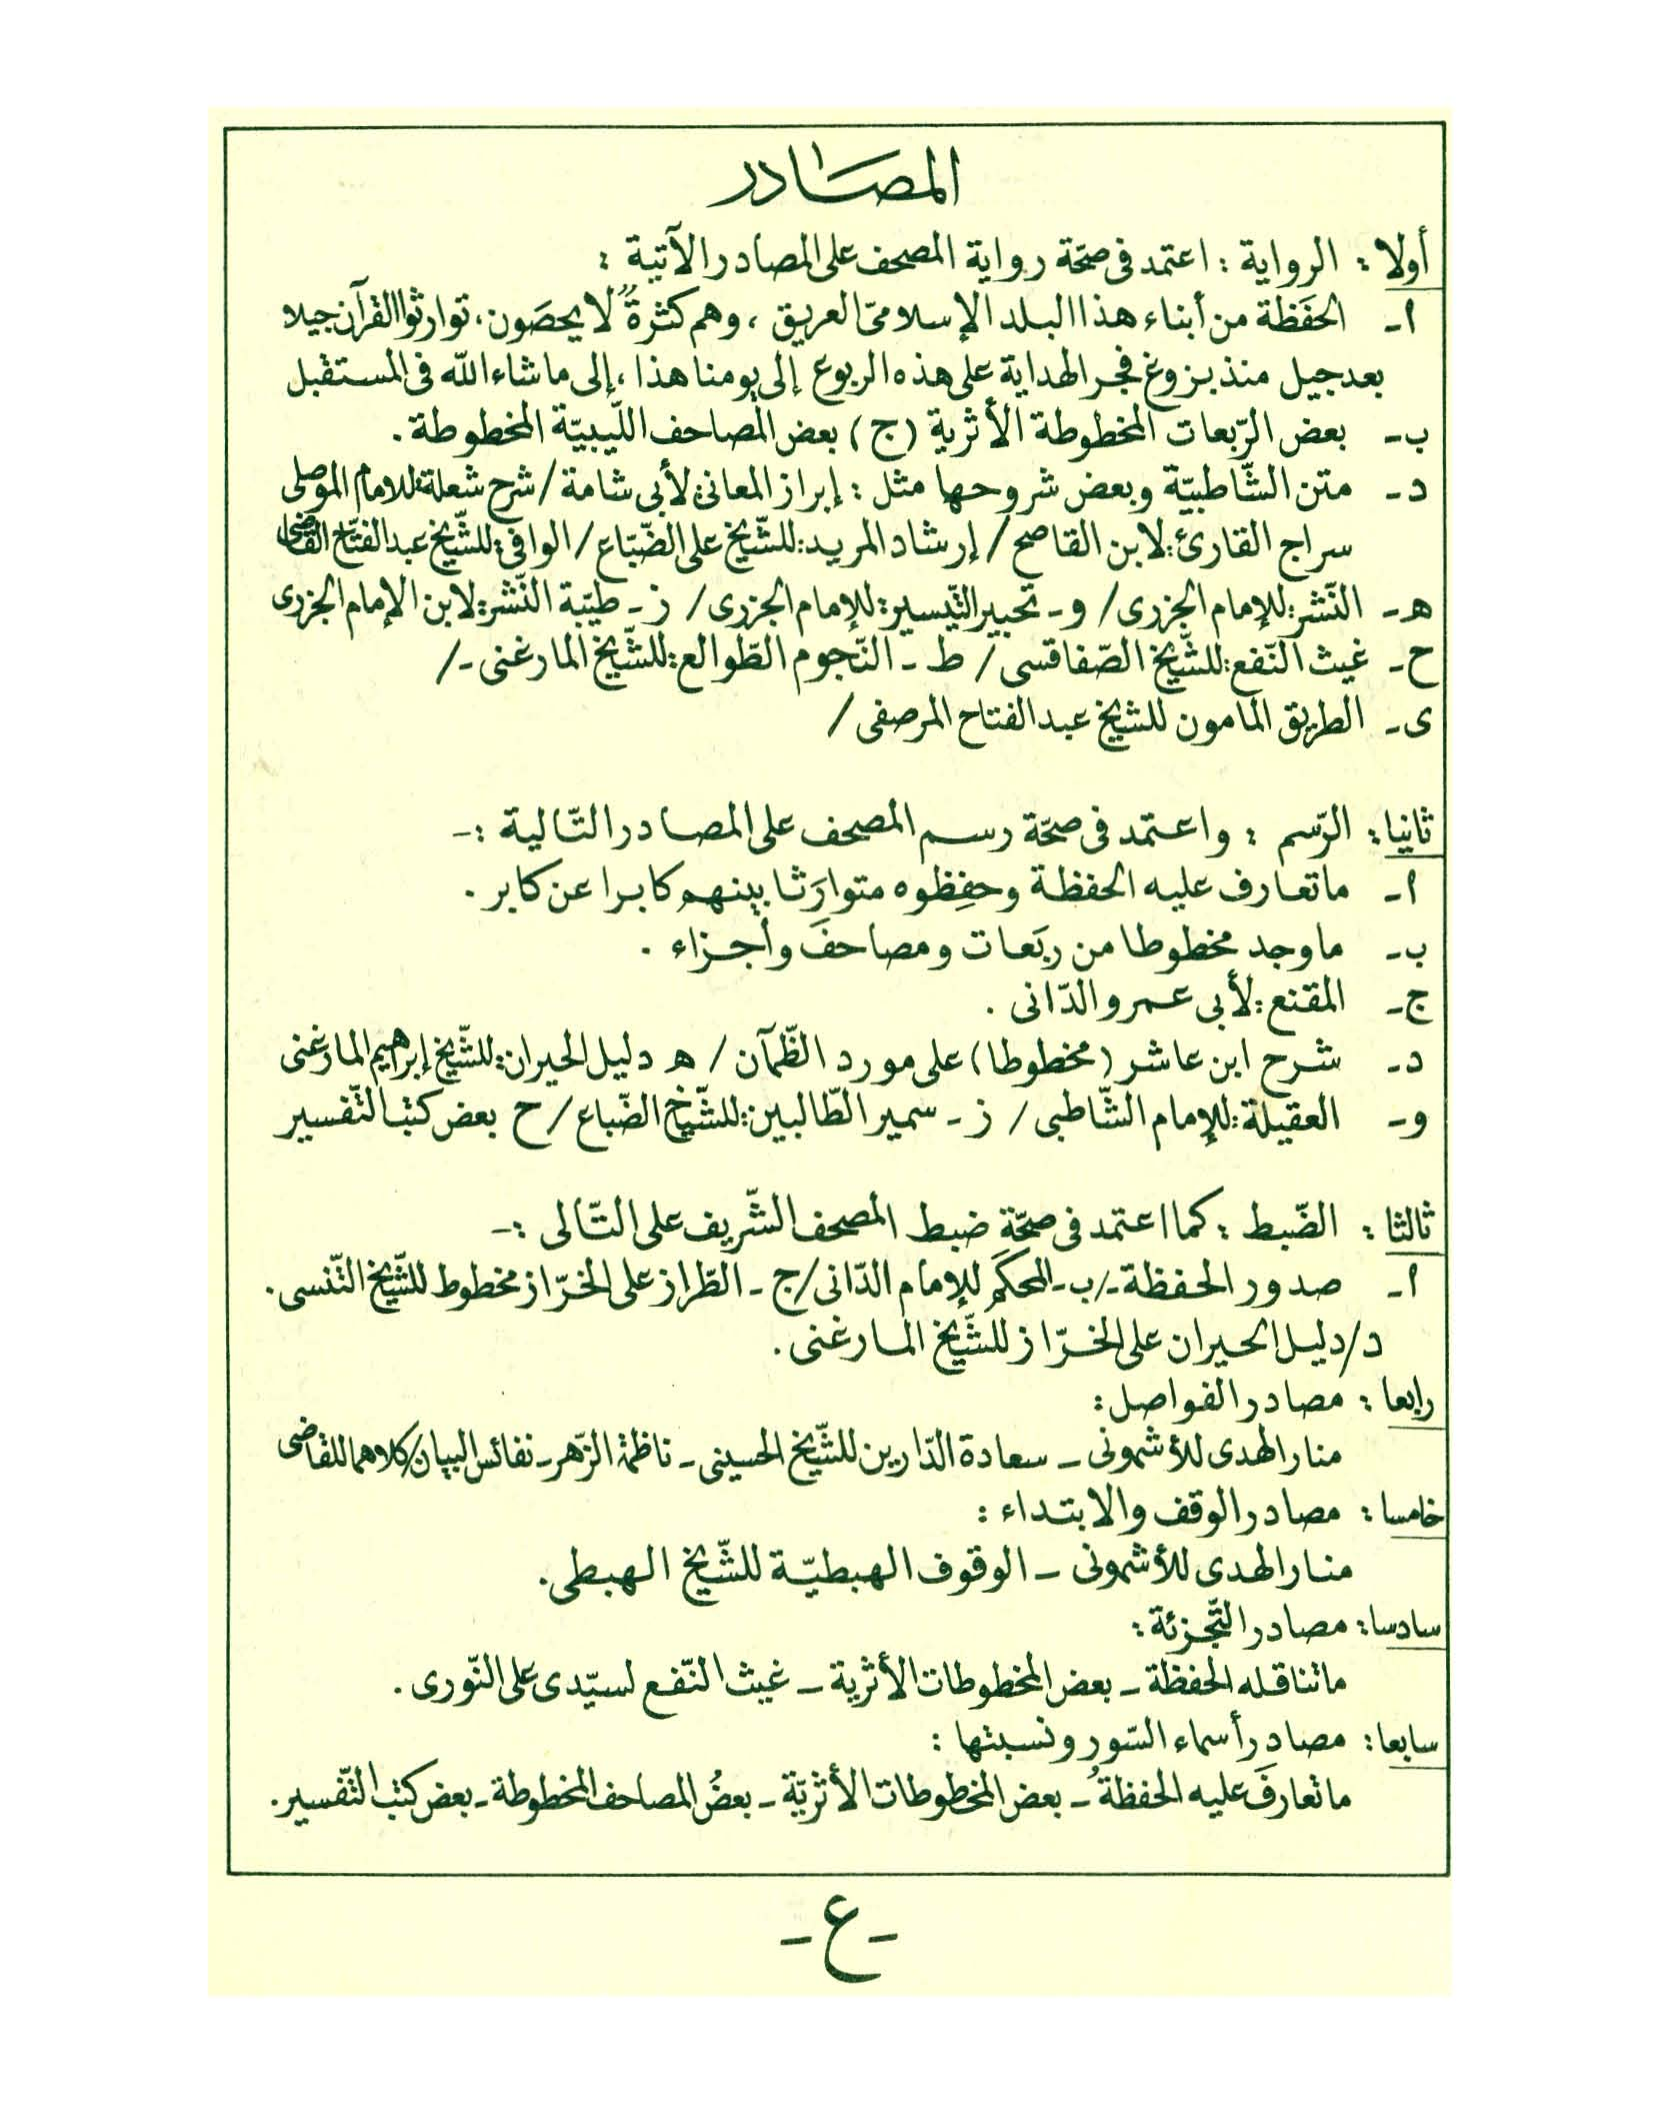 المصادر
أولا: الرواية: اعتمد فى صحّة رواية المصحف على المصادر الآتية:
ا- الحَفَظة من أبناء هذا البلد الإسلامىّ العريق، وهم كثرةٌ لا يحصَون، توارثوا القرآن جيلا
بعد جيل منذ بزوغ فجر الهداية على هذه الربوع إلى يومنا هذا، إلى ما شاء اللّه فى المستقبل
ب- بعض الرّبعات المخطوطة الأثرية (ج) بعض المصاحف اللّيبيّة المخطوطة.
د- متن الشّاطبيّة وبعض شروحها مثل: إبراز المعانى: لأبى شامة / شرح شعلة: للامام الموصلى
سراج القارئ: لابن القاصح / إرشاد المريد: للشّيخ على الضّبّاع / الوافى: للشّيخ عبد الفتّاح القاضى
هـ- النّشر: للإمام الجزرى / و- تحبير التّيسير: للإمام الجزرى / ز- طيّبة النّشر: لابن الإمام الجزرى
ح- غيث النّفع: للشّيخ الصّفاقسى / ط- النّجوم الطّوالع: للشّيخ المارغنى -/
ى- الطريق المامون للشيخ عبد الفتاح المرصفى /
ثانيا: الرّسم: واعتمد فى صحّة رسم المصحف على المصادر التّالية :-
ا- ما تعارف عليه الحفظة وحفِظوه متوارَثا بينهم كابرا عن كابر.
ب- ما وجد مخطوطا من ربَعات ومصاحفَ وأجزاء.
ج- المقنع: لأبى عمرو الدّانى.
د- شرح ابن عاشر (مخطوطا) على مورد الظّمآن / هـ دليل الحيران: للشّيخ إبراهيم المارغنى
و- العقيلة: للإمام الشّاطبى / ز- سمير الطّالبين: للشّيخ الضّباع / ح بعض كتب التّفسير
ثالثا: الضّبط: كما اعتمد فى صحّة ضبط المصحف الشّريف على التّالى :-
ا- صدور الحفظة -/ ب- المحكَم للإمام الدّانى / ج- الطّراز على الخرّاز مخطوط للشّيخ التّنسى.
د/ دليل الحيران على الخرّاز للشّيخ المارغنى.
رابعا: مصادر الفواصل:
منار الهدى للأشمونى - سعادة الدّارين للشّيخ الحسينى - ناظمة الزّهر - نفائس البيان / كلاهما للقاضى
خامسا: مصادر الوقف والابتداء:
منار الهدى للأشمونى - الوقوف الهبطيّة للشّيخ الهبطى.
سادسا: مصادر التّجزئة:
ما تناقله الحفظة - بعض المخطوطات الأثرية - غيث النّفع لسيّدى على النّورى.
سابعا: مصادر أسماء السّور ونسبتها:
ما تعارفَ عليه الحفظةُ - بعض المخطوطات الأثريّة - بعضُ المصاحف المخطوطة - بعض كتب التّفسير.
- ع -